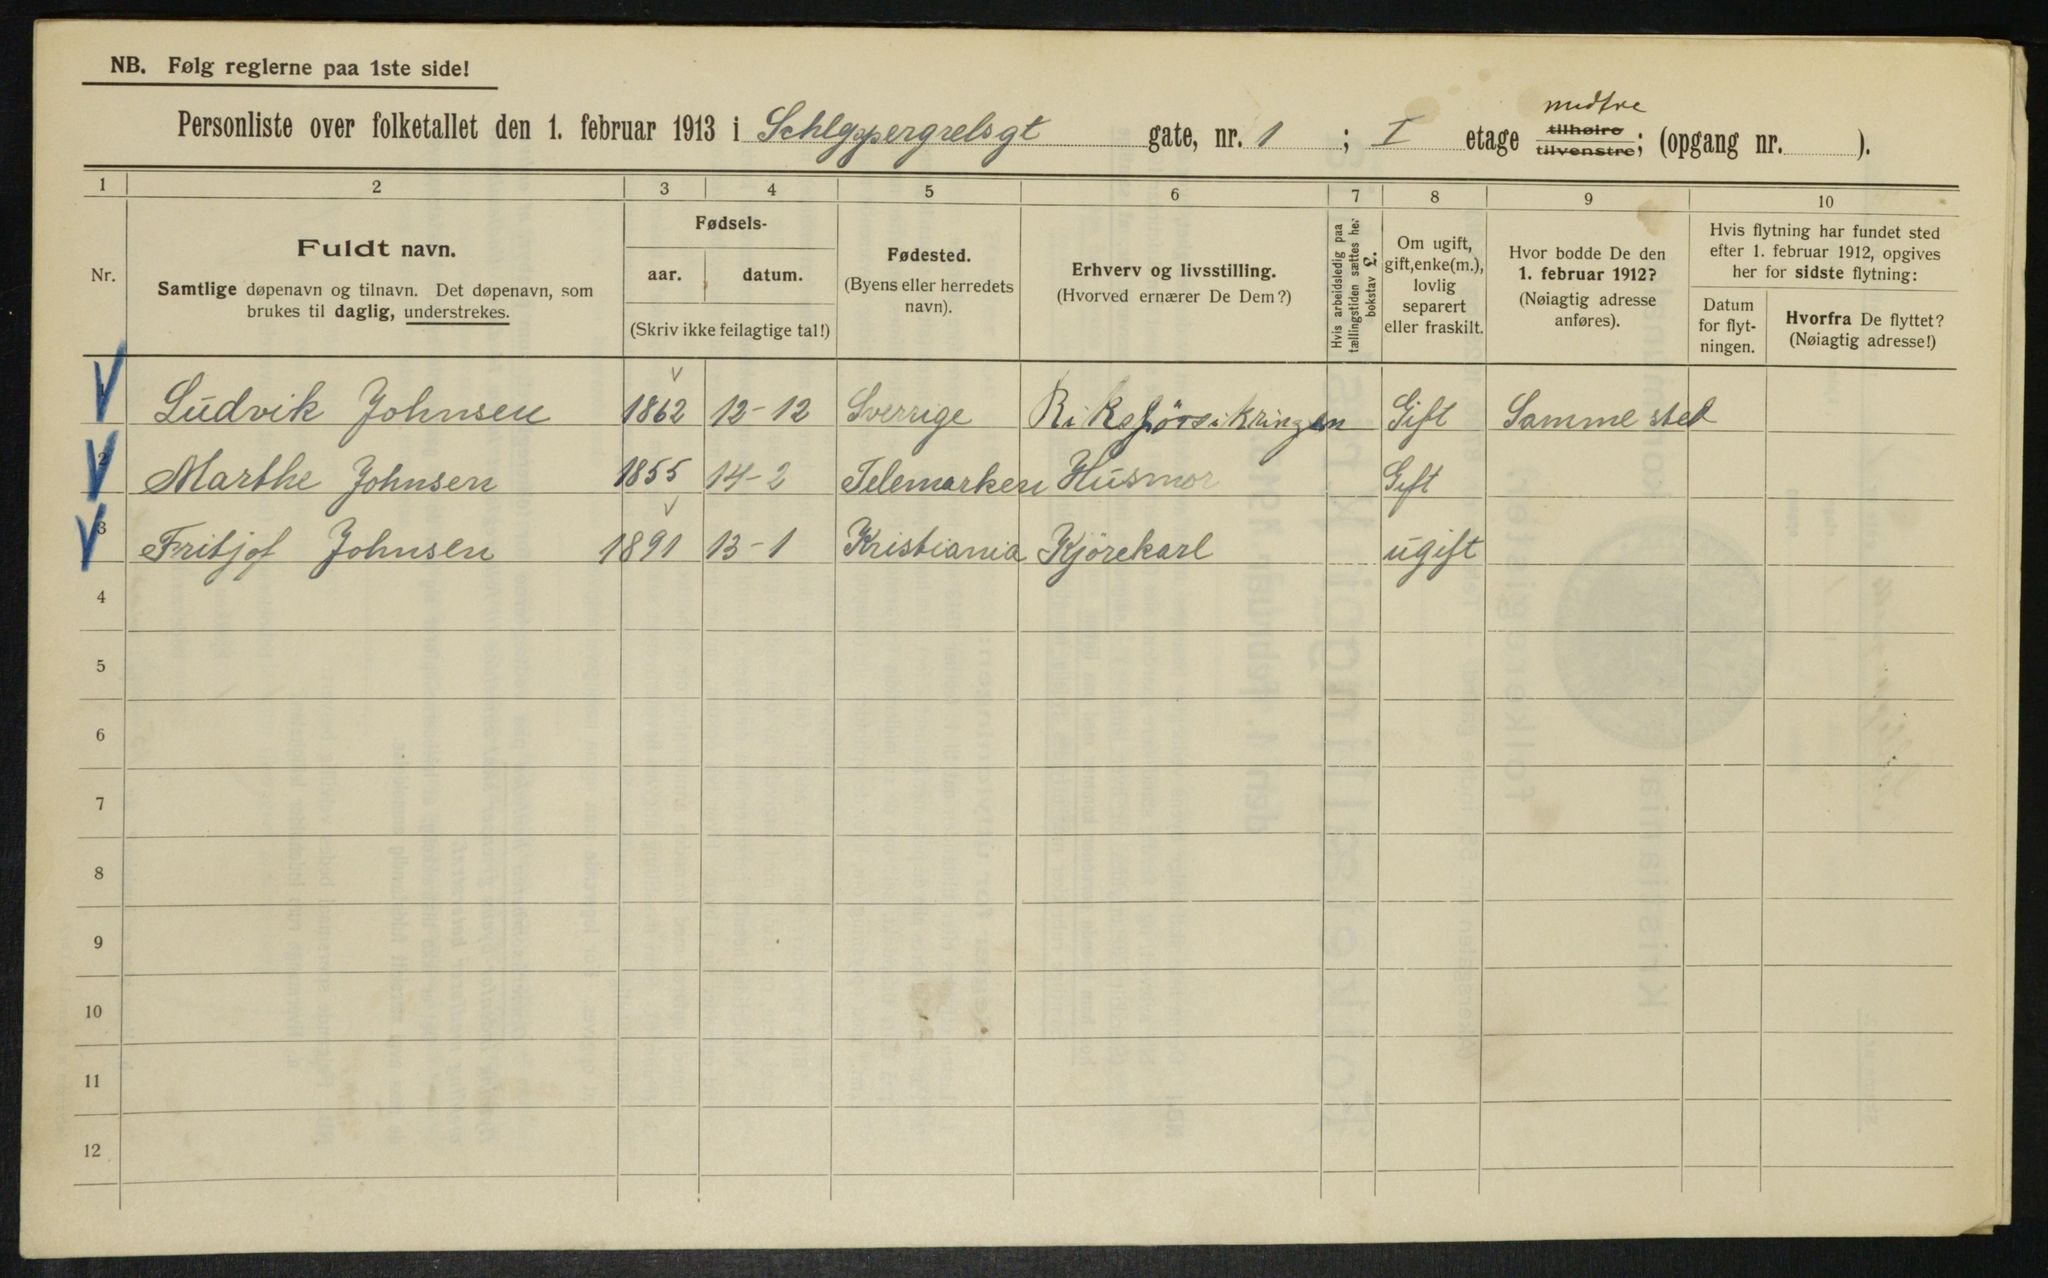 NB. Følg reglerne paa 1ste side!
midtre
Personliste over folketallet den 1. februar 1913 i Schleppergrelsgt gate, nr. 1 ; I etage tilhøire tilvenstre; (opgang nr. ).
1 2 3 4 5 6 7 8 9 10
Nr.
Fuldt navn.
Samtlige døpenavn og tilnavn. Det døpenavn, som
brukes til daglig, understrekes.
Fødsels-
aar. datum.
(Skriv ikke feilagtige tal!)
Fødested.
(Byens eller herredets
navn).
Erhverv og livsstilling.
(Hvorved ernærer De Dem?)
Hvis arbeidsledig paa
tællingstiden sættes her
bokstav L.
Om ugift,
gift, enke(m.),
lovlig
separert
eller fraskilt.
Hvor bodde De den
1. februar 1912?
(Nøiagtig adresse
anføres).
Hvis flytning har fundet sted
efter 1. februar 1912, opgives
her for sidste flytning:
Datum
for flyt-
ningen.
Hvorfra De flyttet?
(Nøiagtig adresse!)
1 Ludvik Johnsen 1862 12-12 Sverrige Riksforsikringen Gift Samme sted
2 Marthe Johnsen 1855 14-2 Telemarken Husmor Gift
3 Fritjof Johnsen 1891 13-1 Kristiania Kjörekarl ugift
4
5
6
7
8
9
10
11
12